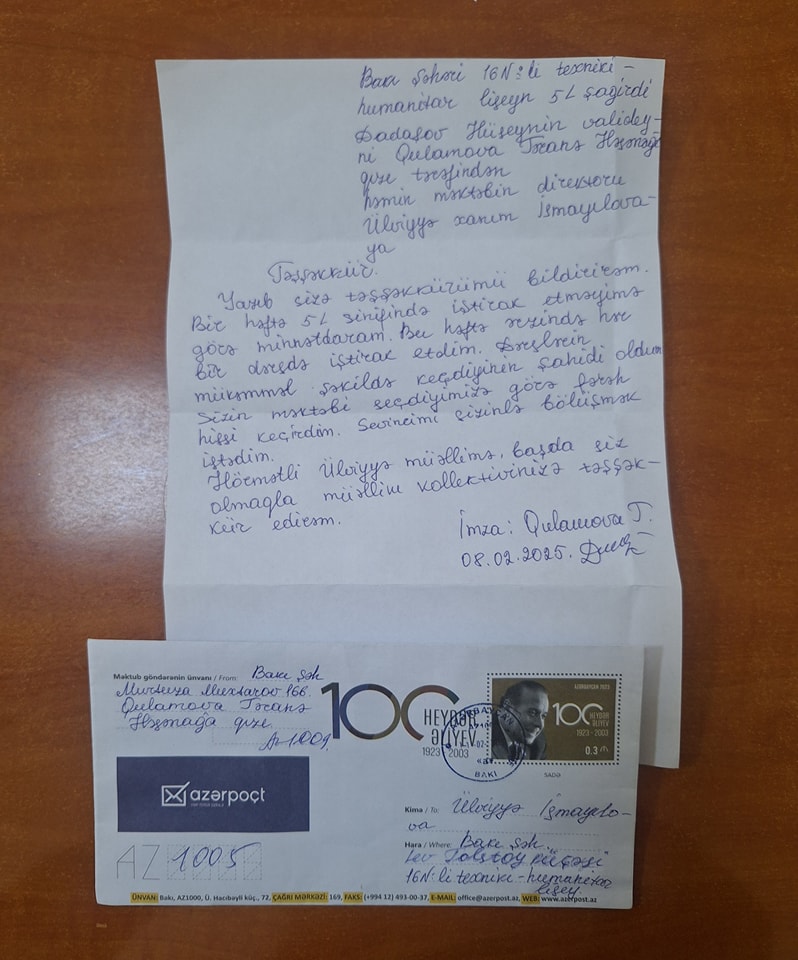 Bakı Şəhəri 16 №:li texniki-
humanitar lişeyn 5L şagirdi
Dadaşov Hüseynin validey-
ni Qulamova Təranə Həşənağa
qızə tərəfindən
həmin məktəbin direktoru
Ülviyyə xanım İsmayılova-
ya
Təşşəkkür.
Yazıb sizə təşşəkkürümü bildirirəm.
Bir həftə 5L sinifində iştirak etməyimə
görə minnətdaram. Bu həftə ərzində hər
bir dərsdə iştirak etdim. Dərslərin
mükəmməl şəkildə keçdiyinin şahidi oldum
Sizin məktəbi seçdiyimizə görə fərəh
hissi keçirdim. Sevincimi sizinlə bölüşmək
istədim.
Hörmətli Ülviyyə müəllimə, başda siz
olmaqla müəllim kollektivinizə təşşək-
kür edirəm.
İmza: Qulamova T.
08.02.2025.
Məktub göndərənin ünvanı / From: Bakı şəh
Murtuza Muxtarov 166.
Qulamova Təranə
Həşənağa qızə.
Az 1009.
100 HEYDƏR
ƏLİYEV
1923 - 2003
AZƏRBAYCAN
BAKI
AZƏRBAYCAN 2023
100
HEYDƏR
ƏLİYEV
1923 - 2003
0.3 ₼
SADƏ
azərpoçt
Kimə / To: Ülviyyə İsmayılo-
va
Hara / Where: Bakı şəh.
Lev Tolstoy küçəsi
16 №:li texniki-humanitar
lişey.
AZ 1005
ÜNVAN: Bakı, AZ1000, Ü. Hacıbəyli küç., 72, ÇAĞRI MƏRKƏZİ: 169, FAKS: (+994 12) 493-00-37, E-MAIL: office@azerpost.az, WEB: www.azerpost.az